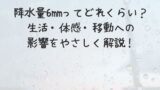 降水量6mmってどれくらい？
生活・体感・移動への
影響をやさしく解説！